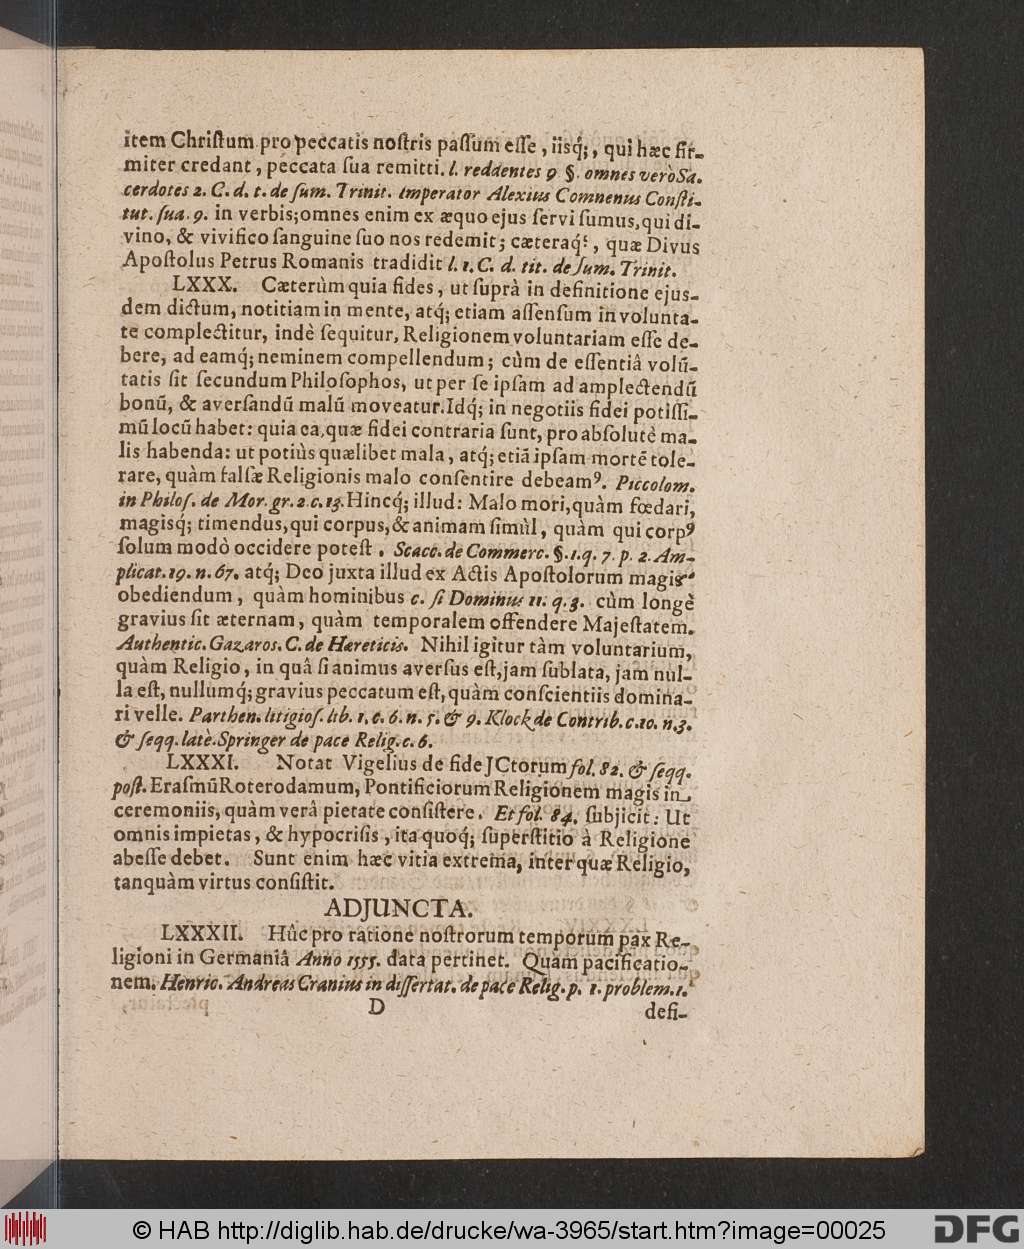 item Chriſtum pro peccatis noſtris paſſum eſſe, iisq́;, qui hæc fir-
miter credant, peccata ſua remitti. l. reddentes 9 §. omnes verò Sa-
cerdotes 2. C. d. t. de ſum. Trinit. Imperator Alexius Comnenus Conſti-
tut. ſua. 9. in verbis; omnes enim ex æquo ejus ſervi ſumus, qui di-
vino, & vivifico ſanguine ſuo nos redemit; cæteraq́;, quæ Divus
Apoſtolus Petrus Romanis tradidit l. 1. C. d. tit. de ſum. Trinit.
LXXX. Cæterùm quia fides, ut ſuprà in definitione ejus-
dem dictum, notitiam in mente, atq́; etiam aſſenſum in volunta-
te complectitur, indè ſequitur, Religionem voluntariam eſſe de-
bere, ad eamq́; neminem compellendum; cùm de eſſentiâ volũ-
tatis ſit ſecundum Philoſophos, ut per ſe ipſam ad amplectendũ
bonũ, & averſandũ malũ moveatur. Idq́; in negotiis fidei potiſſi-
mũ locũ habet: quia ea, quæ fidei contraria ſunt, pro abſolutè ma-
lis habenda: ut potiùs quælibet mala, atq́; etiã ipſam mortẽ tole-
rare, quàm falſæ Religionis malo conſentire debeamꝰ. Piccolom.
in Philoſ. de Mor. gr. 2. c. 13. Hincq́; illud: Malo mori, quàm fœdari,
magisq́; timendus, qui corpus, & animam ſimùl, quàm qui corpꝰ
ſolum modò occidere poteſt. Scacc. de Commerc. §. 1. q. 7. p. 2. Am-
plicat. 19. n. 67. atq́; Deo juxta illud ex Actis Apoſtolorum magis
obediendum, quàm hominibus c. ſi Dominus 11. q. 3. cùm longè
gravius ſit æternam, quàm temporalem offendere Majeſtatem.
Authentic. Gazaros. C. de Hæreticis. Nihil igitur tàm voluntarium,
quàm Religio, in quâ ſi animus averſus eſt, jam ſublata, jam nul-
la eſt, nullumq́; gravius peccatum eſt, quàm conſcientiis domina-
ri velle. Parthen. litigioſ. lib. 1. c. 6. n. 5. & 9. Klock de Contrib. c. 10. n. 3.
& ſeqq. latè. Springer de pace Relig. c. 6.
LXXXI. Notat Vigelius de fide JCtorum fol. 82. & ſeqq.
poſt. Eraſmũ Roterodamum, Pontificiorum Religionem magis in
ceremoniis, quàm verâ pietate conſiſtere. Et fol. 84. ſubjicit: Ut
omnis impietas, & hypocriſis, ita quoq́; ſuperſtitio à Religione
abeſſe debet. Sunt enim hæc vitia extrema, inter quæ Religio,
tanquàm virtus conſiſtit.
ADJUNCTA.
LXXXII. Hûc pro ratione noſtrorum temporum pax Re-
ligioni in Germaniâ Anno 1555. data pertinet. Quam pacificatio-
nem. Henric. Andreas Cranius in diſſertat. de pace Relig. p. 1. problem. 1.
D defi-
© HAB http://diglib.hab.de/drucke/wa-3965/start.htm?image=00025
DFG